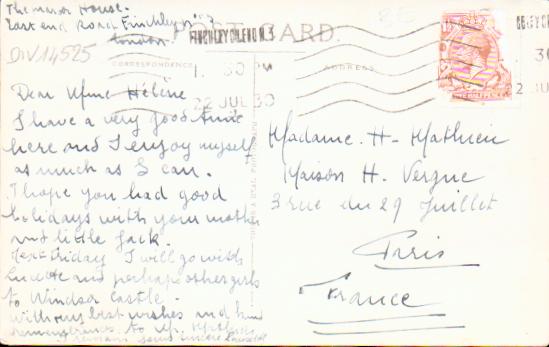 The manor House.
East end Road Finchley N.3
London
DIV 14525
POST CARD.
FINCHLEY CH. END N.3
CORRESPONDENCE
ADDRESS
1. 30 PM
22 JUL 30
Dear Mme Hélène
I have a very good time
here and I enjoy myself
as much as I can.
I hope you had good
holidays with your mother
and little Jack.
Next Friday I will go with
and perhaps other girls
to Windsor Castle.
With my best wishes and kind
remembrances to Mr. Mathieu
I remain yours sincerely
Madame. H. Mathieu
Maison H. Vergne
3 rue du 29 Juillet
Paris
France